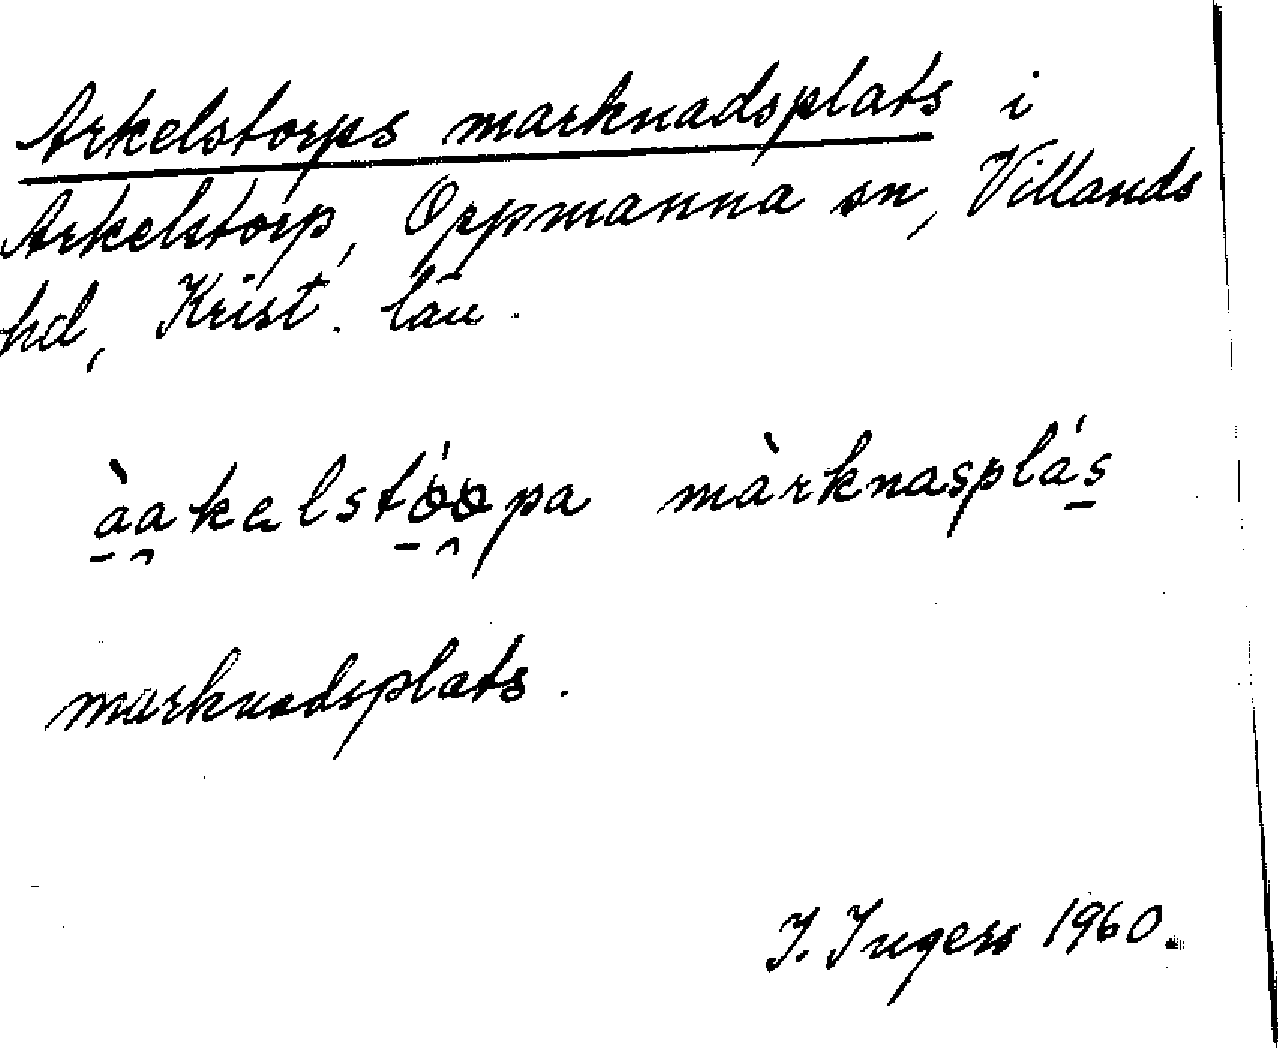 Arkelstorps marknadsplats i
Arkelstorp, Oppmanna sn, Villands
hd, Krist. län.
àakəlstóopa màrknasplás
marknadsplats.
I. Ingers 1960.